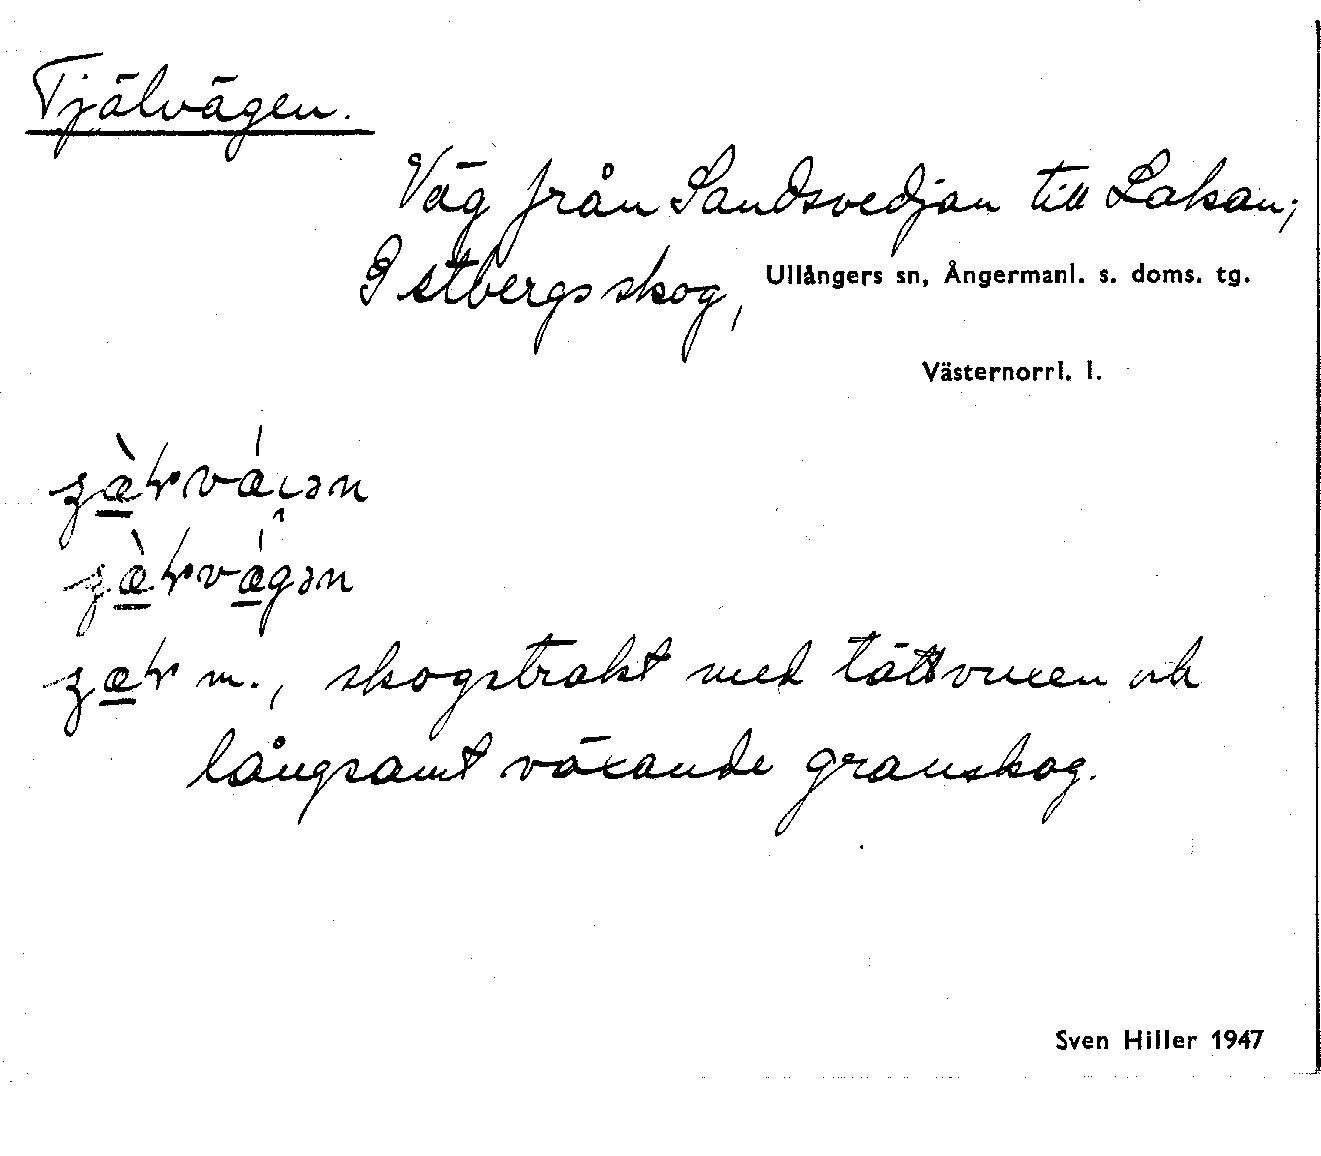 Tjälvägen.
Väg från Sandsvedjan till Lakan;
Istbergsskog, Ullångers sn, Ångermanl. s. doms. tg.
Västernorrl. l.
m., skogstrakt med tättvuxen och
långsamt växande granskog.
Sven Hiller 1947